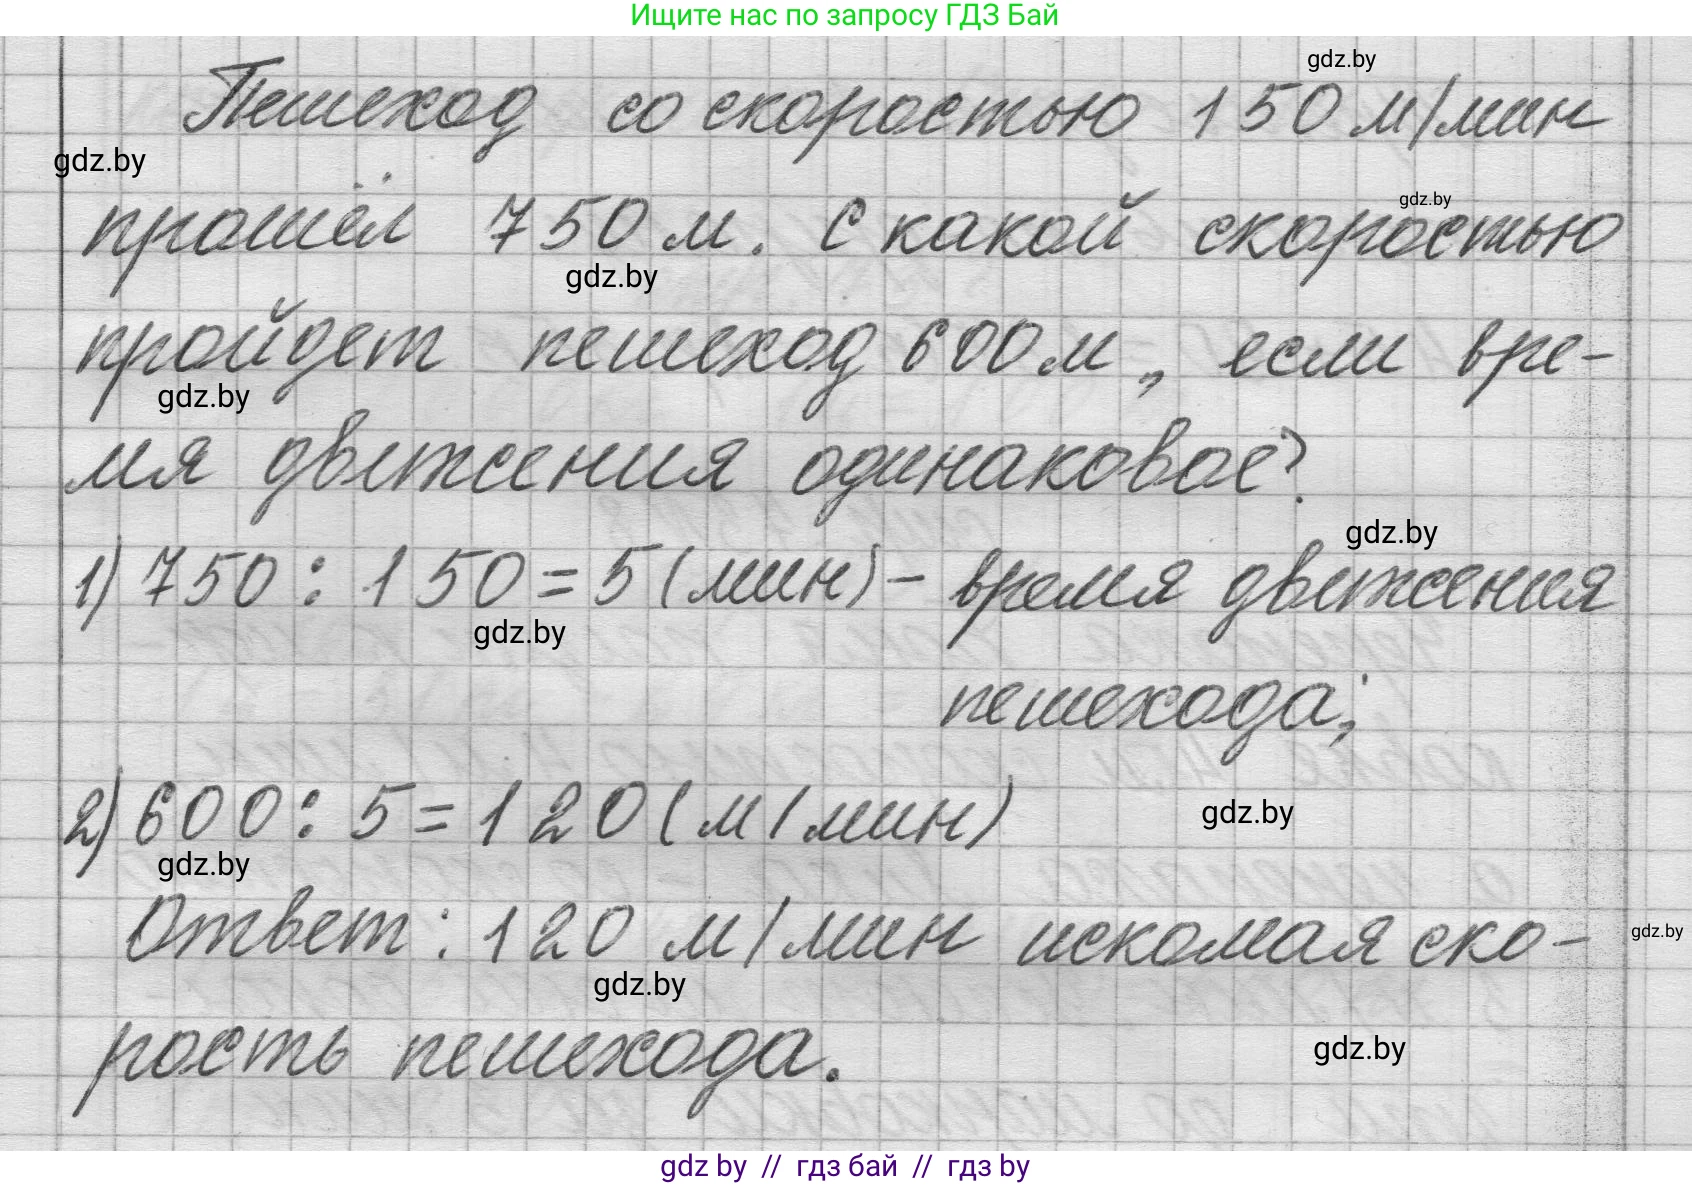 Ищите нас по запросу ГДЗ Бай
gdz.by
Пешеход со скоростью 150 м/мин
gdz.by
gdz.by
прошёл 750 м. С какой скоростью
gdz.by
пройдет пешеход 600 м, если вре-
gdz.by
мя движения одинаковое?
gdz.by
1) 750 : 150 = 5 (мин) – время движения
gdz.by
пешехода;
2) 600 : 5 = 120 (м/мин)
gdz.by
gdz.by
Ответ: 120 м/мин искомая ско-
gdz.by
gdz.by
рость пешехода.
gdz.by
gdz by // гдз бай // гдз by